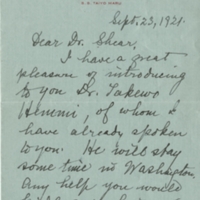 Sept. 23, 1921.
Dear Dr. Shear,
I have a great
pleasure of introducing
to you Dr. Takewo
Hemmi, of whom I
have already spoken
to you. He will stay
some time in Washington.
Any help you would